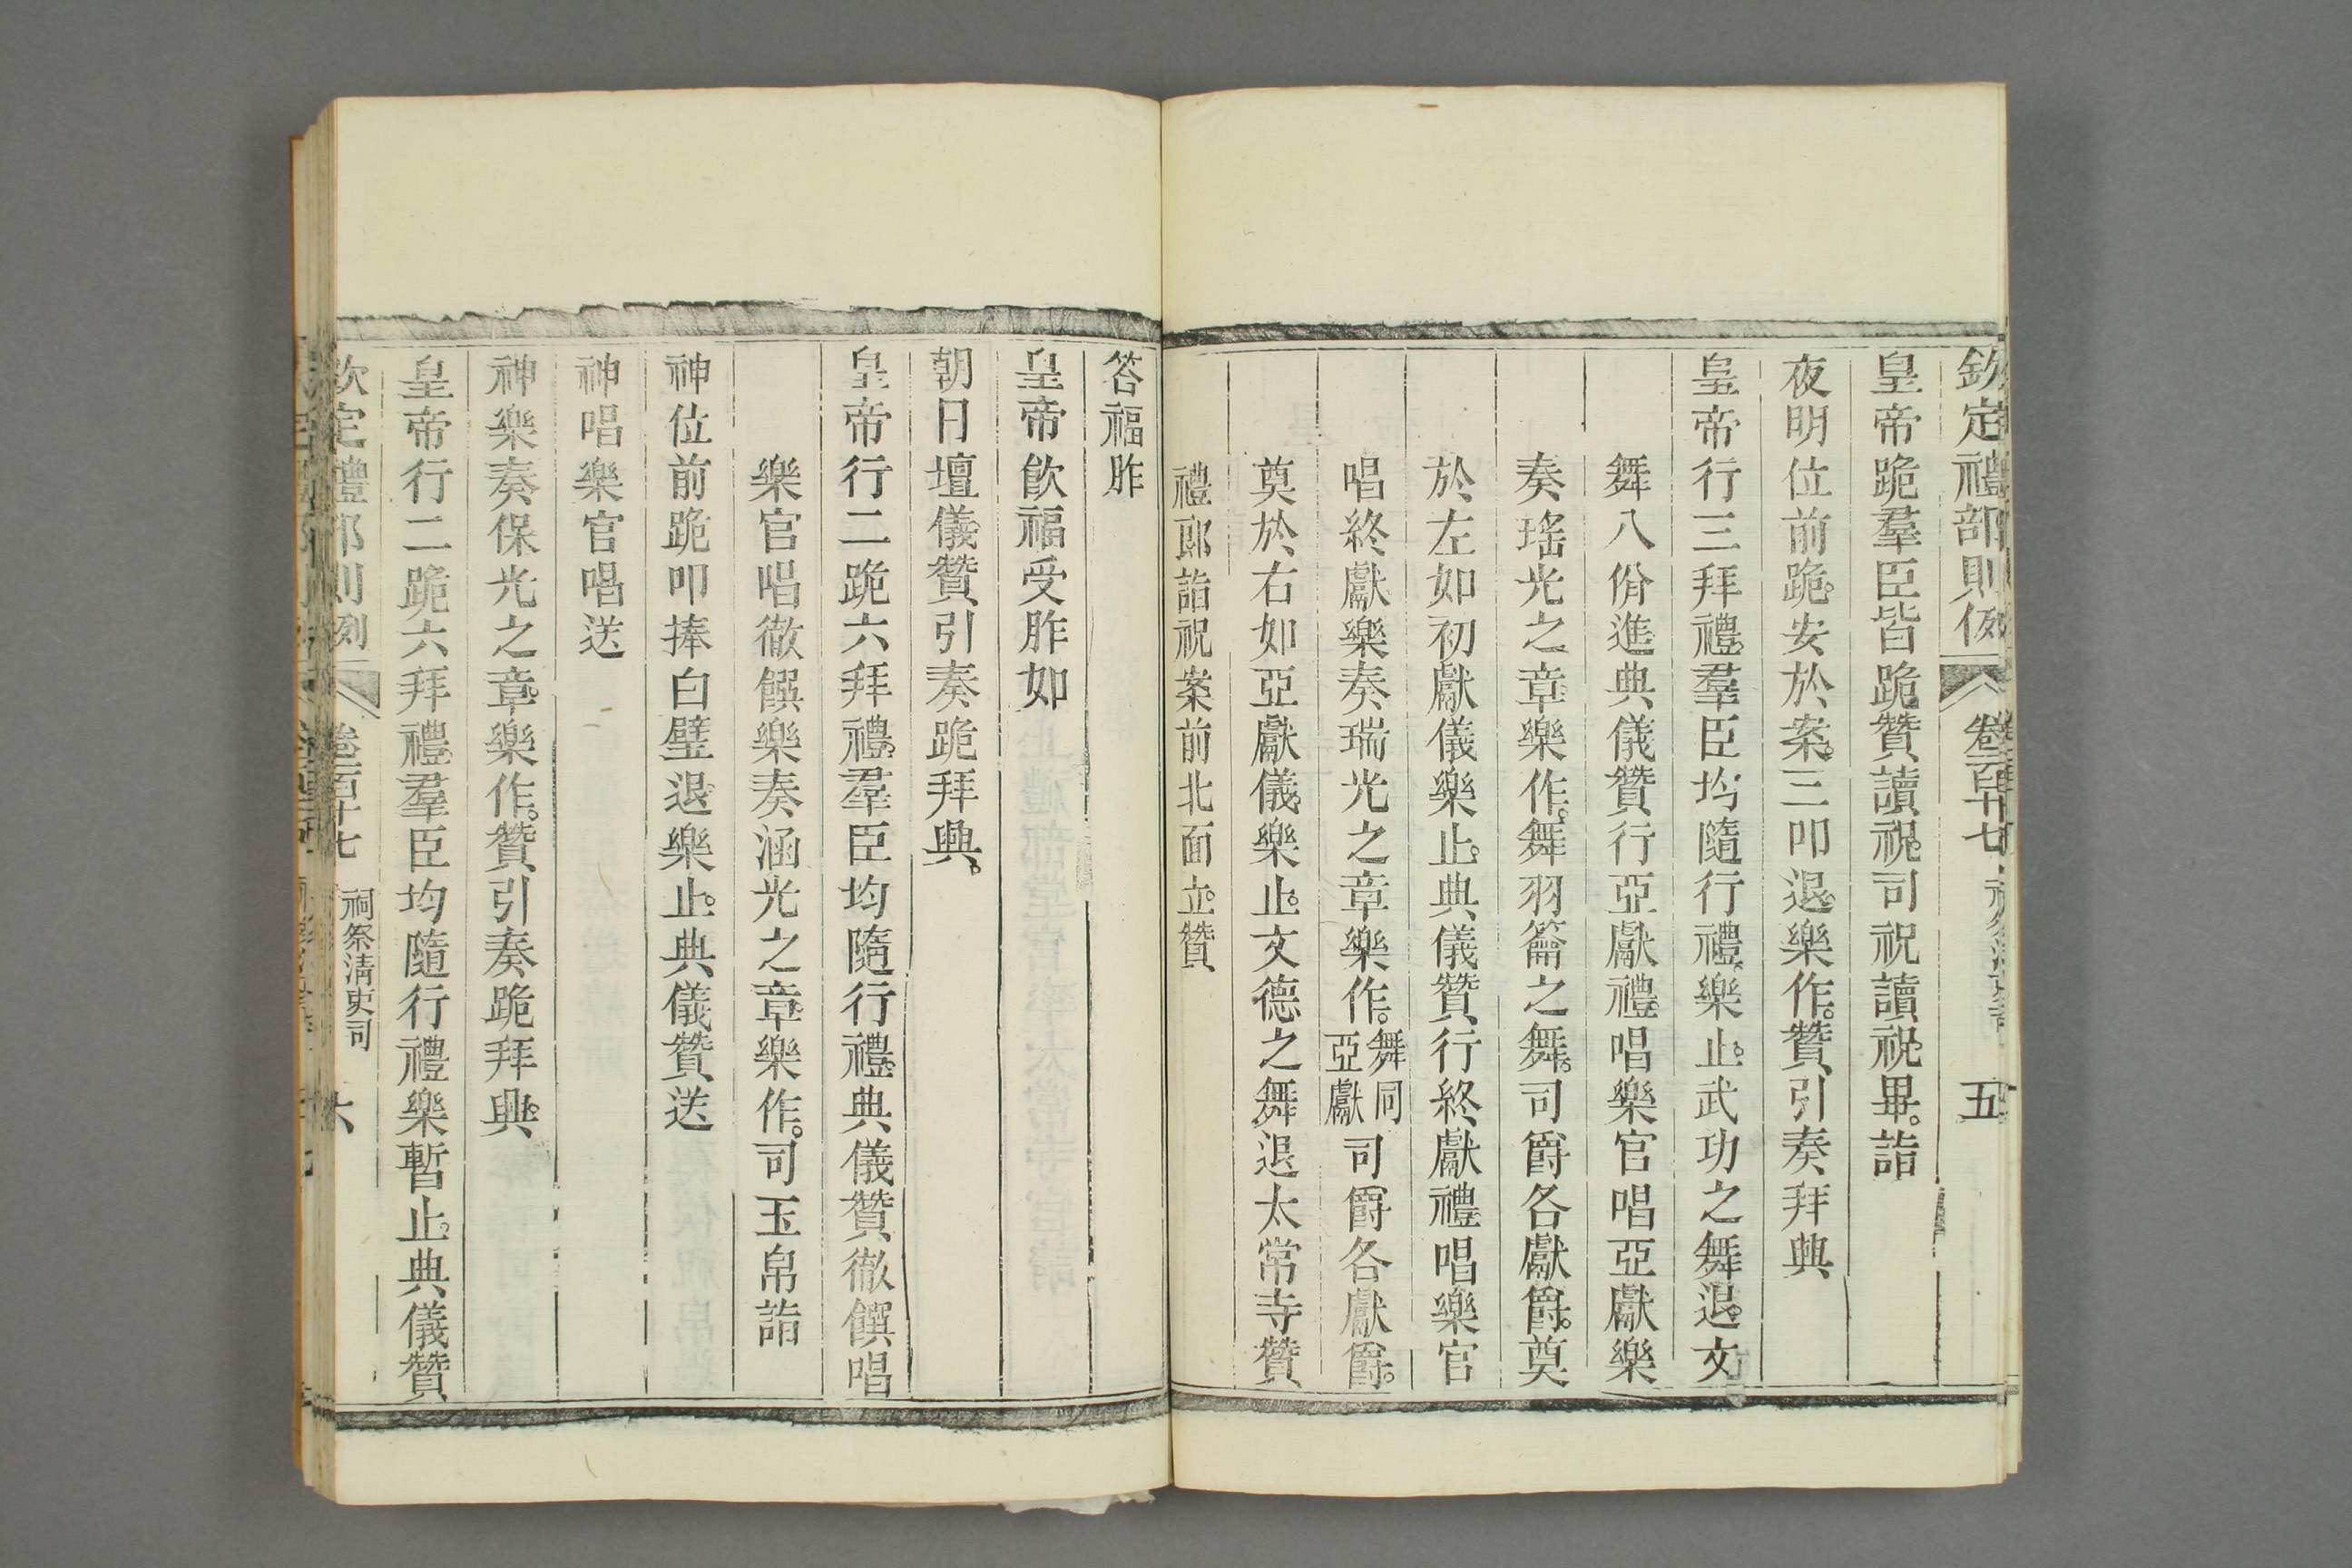 欽定禮部則例 卷一百十七 五
皇帝跪羣臣皆跪贊讀祝。司祝讀祝。畢。詣
夜明位前。跪。安於案。三叩。退。樂作。贊引奏拜興
皇帝行三拜禮。羣臣均隨行禮。樂止。武功之舞退。文
舞八佾進。典儀贊行亞獻禮。唱樂官唱亞獻樂
奏瑤光之章。樂作。舞羽籥之舞。司爵各獻爵。奠
於左如初獻儀樂止。典儀贊行終獻禮唱樂官
唱終獻樂奏瑞光之章。樂作。舞同亞獻司爵各獻爵。
奠於右如亞獻儀。樂止。文德之舞退太常寺贊
禮郎詣祝案前北面立。贊
答福胙
皇帝飲福受胙如
朝日壇儀贊引奏跪拜興。
皇帝行二跪六拜禮。羣臣均隨行禮。典儀贊徹饌唱
樂官唱徹饌樂奏涵光之章。樂作。司玉帛詣
神位前跪叩捧白璧退。樂止。典儀贊送
神唱樂官唱送
神樂奏保光之章。樂作。贊引奏跪拜興。
皇帝行二跪六拜禮。羣臣均隨行禮樂暫止。典儀贊
欽定禮部則例 卷一百十七 祠祭清吏司 六